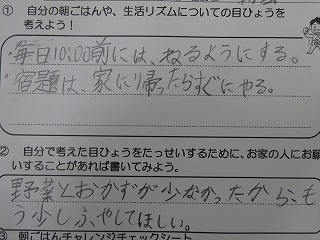 ① 自分の朝ごはんや、生活リズムについての目ひょうを
考えよう！
・毎日10:00前には、ねるようにする。
・宿題は、家に帰ったらすぐにやる。
② 自分で考えた目ひょうをたっせいするために、お家の人にお願
いすることがあれば書いてみよう。
野菜とおかずが少なかったから、も
う少しふやしてほしい。
③ 朝ごはんチャレンジチェックシート